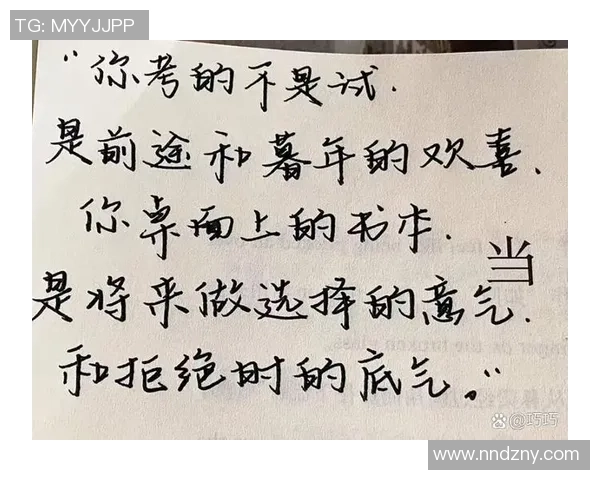 TG: MYYJJPP
“你考的不是试.
是前途和暮年的欢喜.
你桌面上的书本.
当
是将来做选择的意气.
和拒绝时的底气。”
百度@巧巧
www.nndzny.com